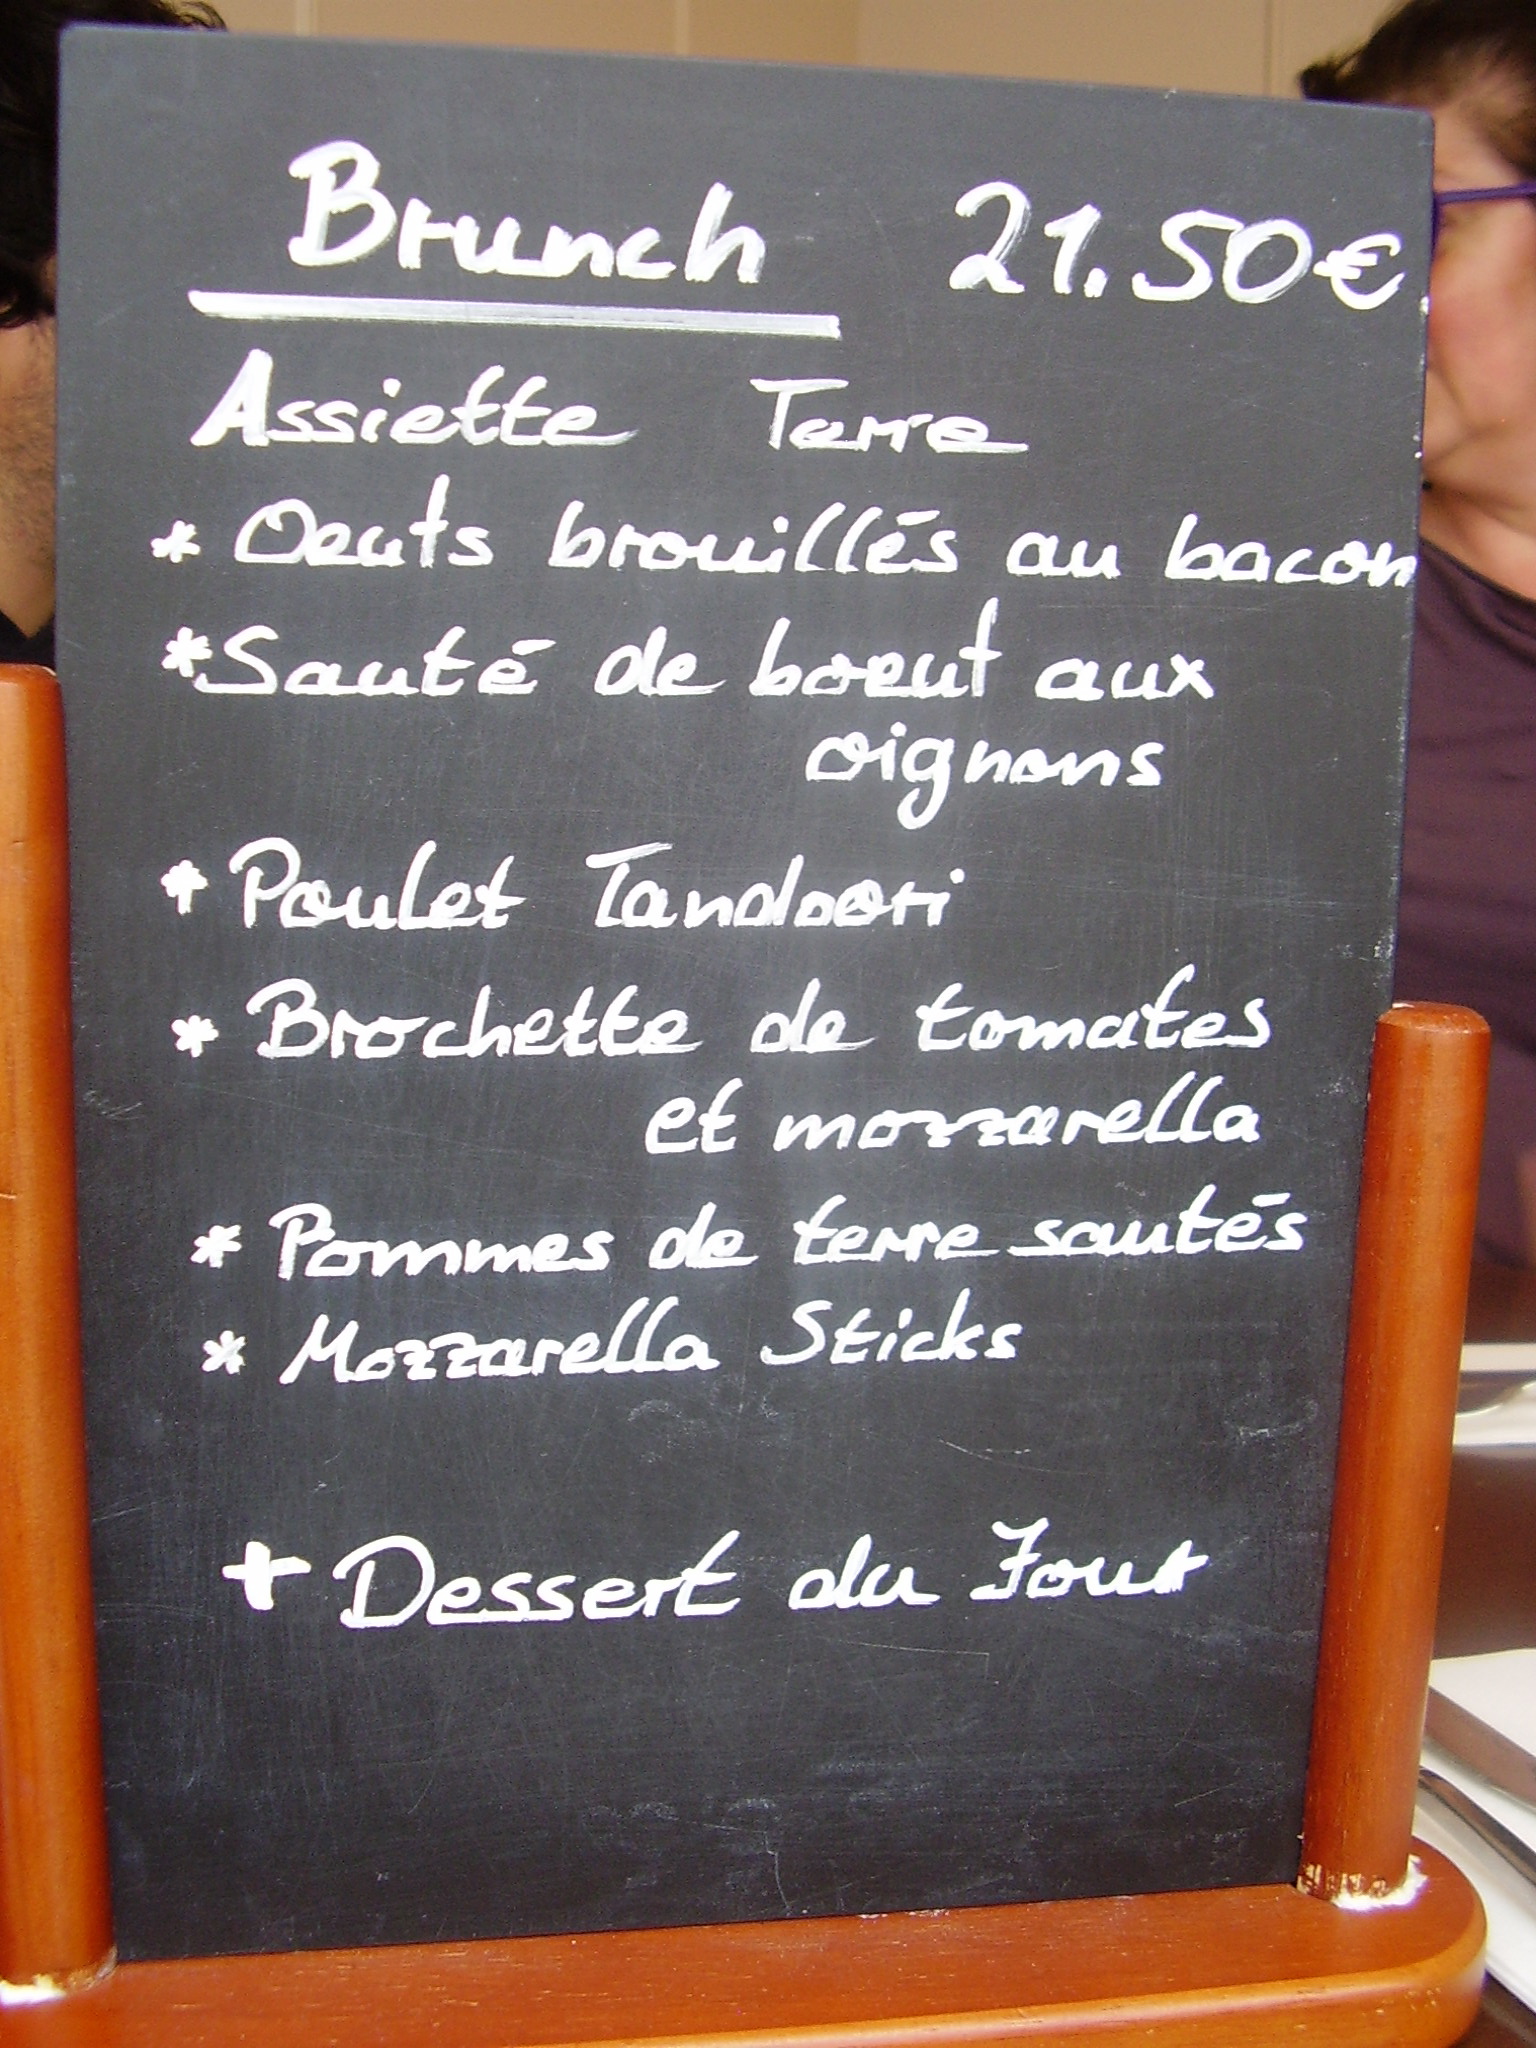 Brunch 21.50€
Assiette Terre
* Oeufs brouillés au bacon
* Sauté de boeuf aux
oignons
* Poulet Tandoori
* Brochette de tomates
et mozzarella
* Pommes de terre sautés
* Mozzarella Sticks
+ Dessert du Jour